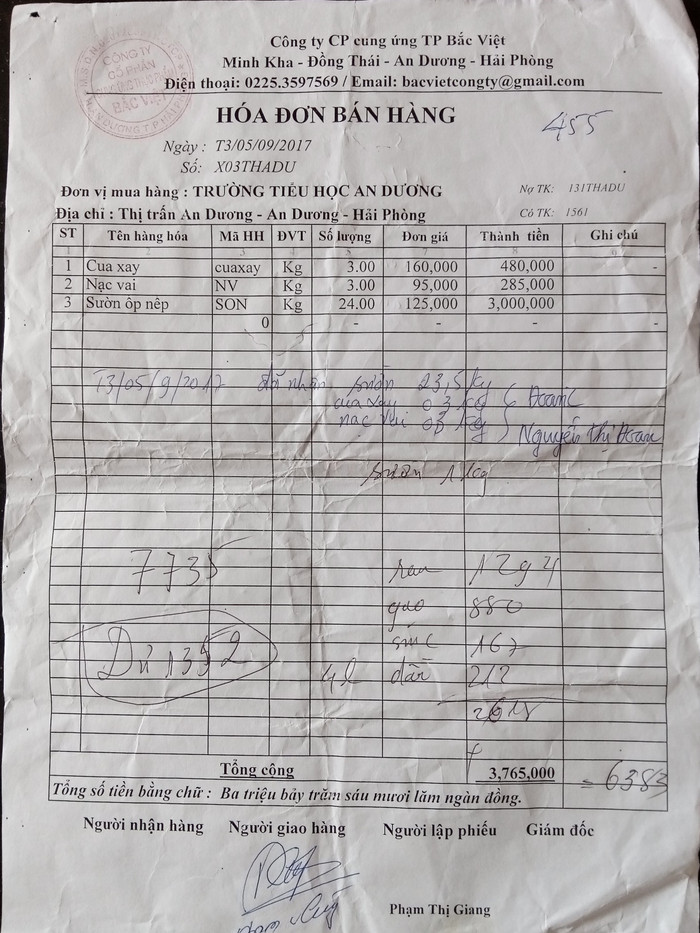 Công ty CP cung ứng TP Bắc Việt
Minh Kha - Đồng Thái - An Dương - Hải Phòng
Điện thoại: 0225.3597569 / Email: bacvietcongty@gmail.com
CÔNG TY
CỔ PHẦN
BẮC VIỆT
HÓA ĐƠN BÁN HÀNG
455
Ngày : T3/05/09/2017
Số: X03THADU
Đơn vị mua hàng : TRƯỜNG TIỂU HỌC AN DƯƠNG Nợ TK: 131THADU
Địa chỉ : Thị trấn An Dương - An Dương - Hải Phòng Có TK: 1561
ST Tên hàng hóa Mã HH ĐVT Số lượng Đơn giá Thành tiền Ghi chú
1 Cua xay cuaxay Kg 3.00 160,000 480,000 -
2 Nạc vai NV Kg 3.00 95,000 285,000
3 Sườn ốp nếp SON Kg 24.00 125,000 3,000,000
0 - - - -
T3/05/9/2017 đã nhận sườn 23,5 kg
cua xay 03 kg Hoan
nạc vai 03 kg Nguyễn Thị Hoan
sườn 1 kg
7735 rau 1294
gạo 880
Dư 1352 167
4l dầu 212
Tổng cộng 3,765,000 = 6383
Tổng số tiền bằng chữ : Ba triệu bảy trăm sáu mươi lăm ngàn đồng.
Người nhận hàng Người giao hàng Người lập phiếu Giám đốc
Phạm Thị Giang